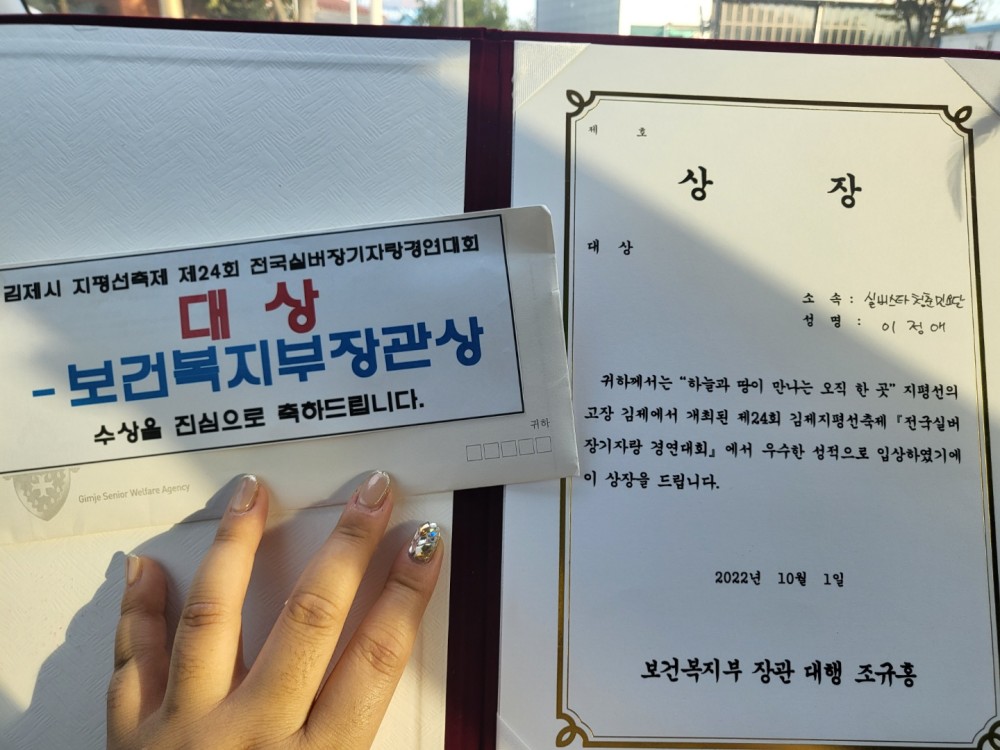 김제시 지평선축제 제24회 전국실버장기자랑경연대회
대 상
- 보건복지부장관상
수상을 진심으로 축하드립니다.
귀하
Gimje Senior Welfare Agency
제 호
상 장
대 상
소 속 : 실버스타 청춘민요단
성 명 : 이 정 애
귀하께서는 "하늘과 땅이 만나는 오직 한 곳" 지평선의
고장 김제에서 개최된 제24회 김제지평선축제 『전국실버
장기자랑 경연대회』에서 우수한 성적으로 입상하였기에
이 상장을 드립니다.
2022년 10월 1일
보건복지부 장관 대행 조규홍